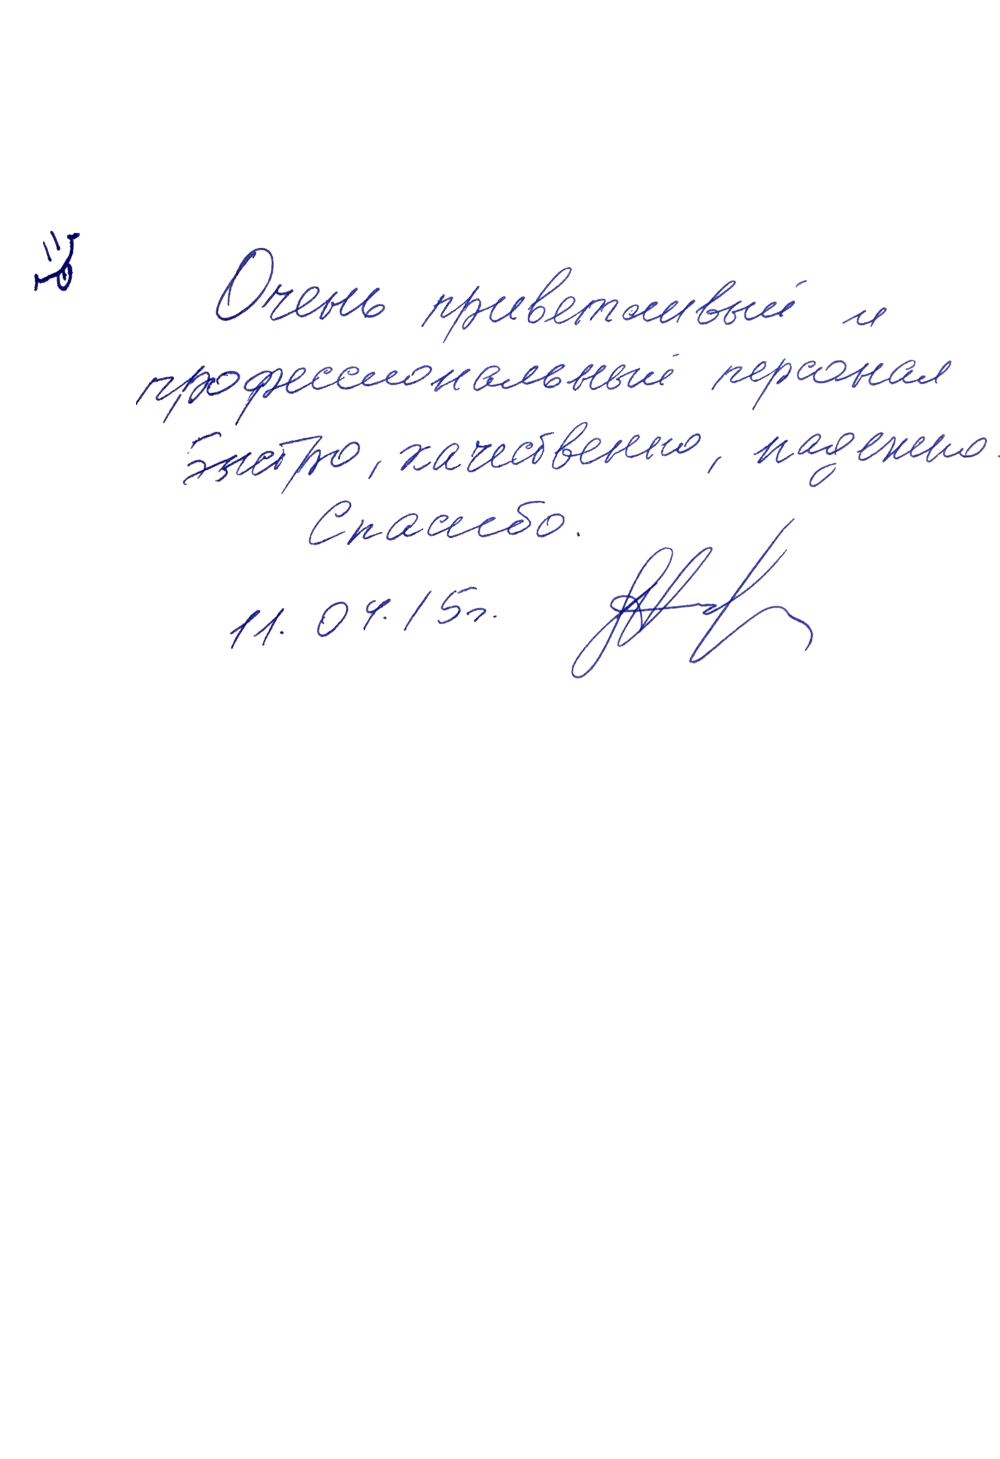 Очень приветливый и
профессиональный персонал
Быстро, качественно, надежно.
Спасибо.
11. 04. 15г.